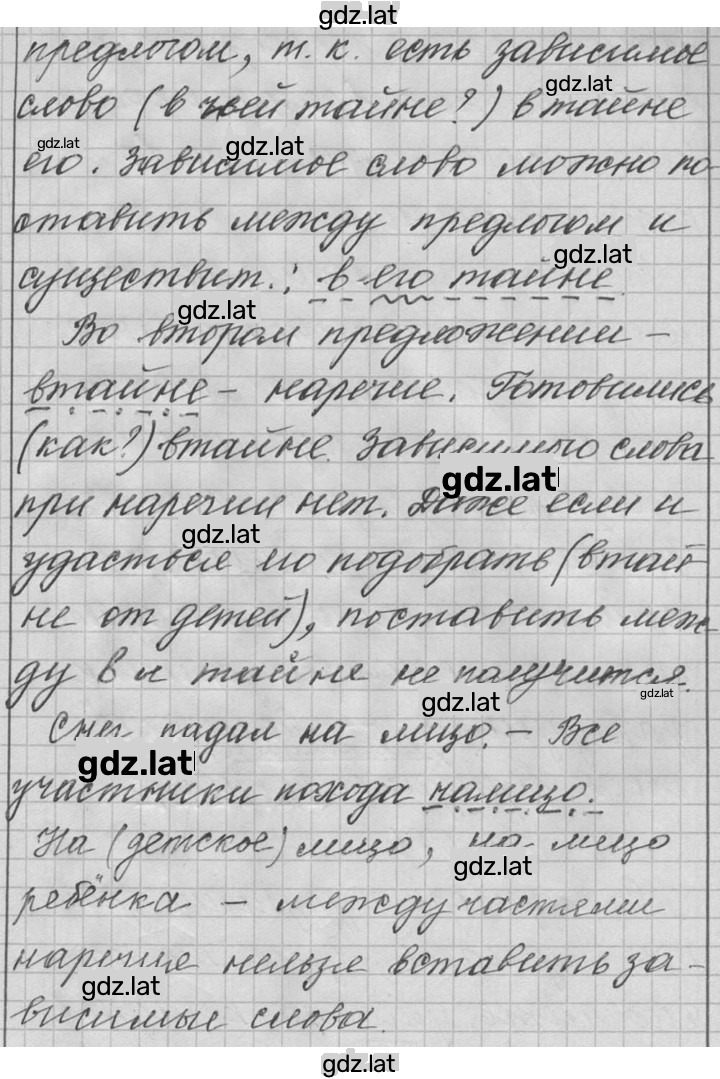 gdz.lat
предлогом, т. к. есть зависимое
gdz.lat
слово (в чьей тайне?) в тайне
gdz.lat
gdz.lat
его. Зависимое слово можно по-
ставить между предлогом и
gdz.lat
существит.: в его тайне.
gdz.lat
Во втором предложении -
втайне - наречие. Готовились
(как?) втайне. Зависимого слова
gdz.lat
при наречии нет. Даже если и
gdz.lat
удасться его подобрать (втай
не от детей), поставить меж-
ду в и тайне не получится.
gdz.lat
gdz.lat
Снег падал на лицо. - Все
gdz.lat
участники похода налицо.
На (детское) лицо, на лицо
gdz.lat
ребёнка - между частями
наречия нельзя вставить за-
gdz.lat
висимые слова.
gdz.lat